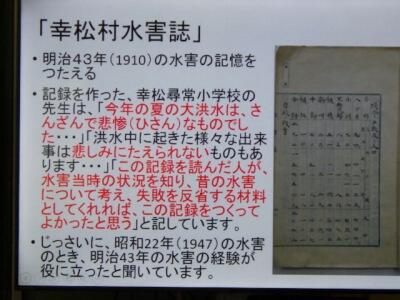 「幸松村水害誌」
• 明治43年（1910）の水害の記憶を
つたえる
• 記録を作った、幸松尋常小学校の
先生は、「今年の夏の大洪水は、さ
んざんで悲惨（ひさん）なものでし
た・・・」「洪水中に起きた様々な出来
事は悲しみにたえられないものもあ
ります・・・」「この記録を読んだ人が、
水害当時の状況を知り、昔の水害
について考え、失敗を反省する材料
としてくれれば、この記録をつくって
よかったと思う」と記しています。
• じっさいに、昭和22年（1947）の水害
のとき、明治43年の水害の経験が
役に立ったと聞いています。